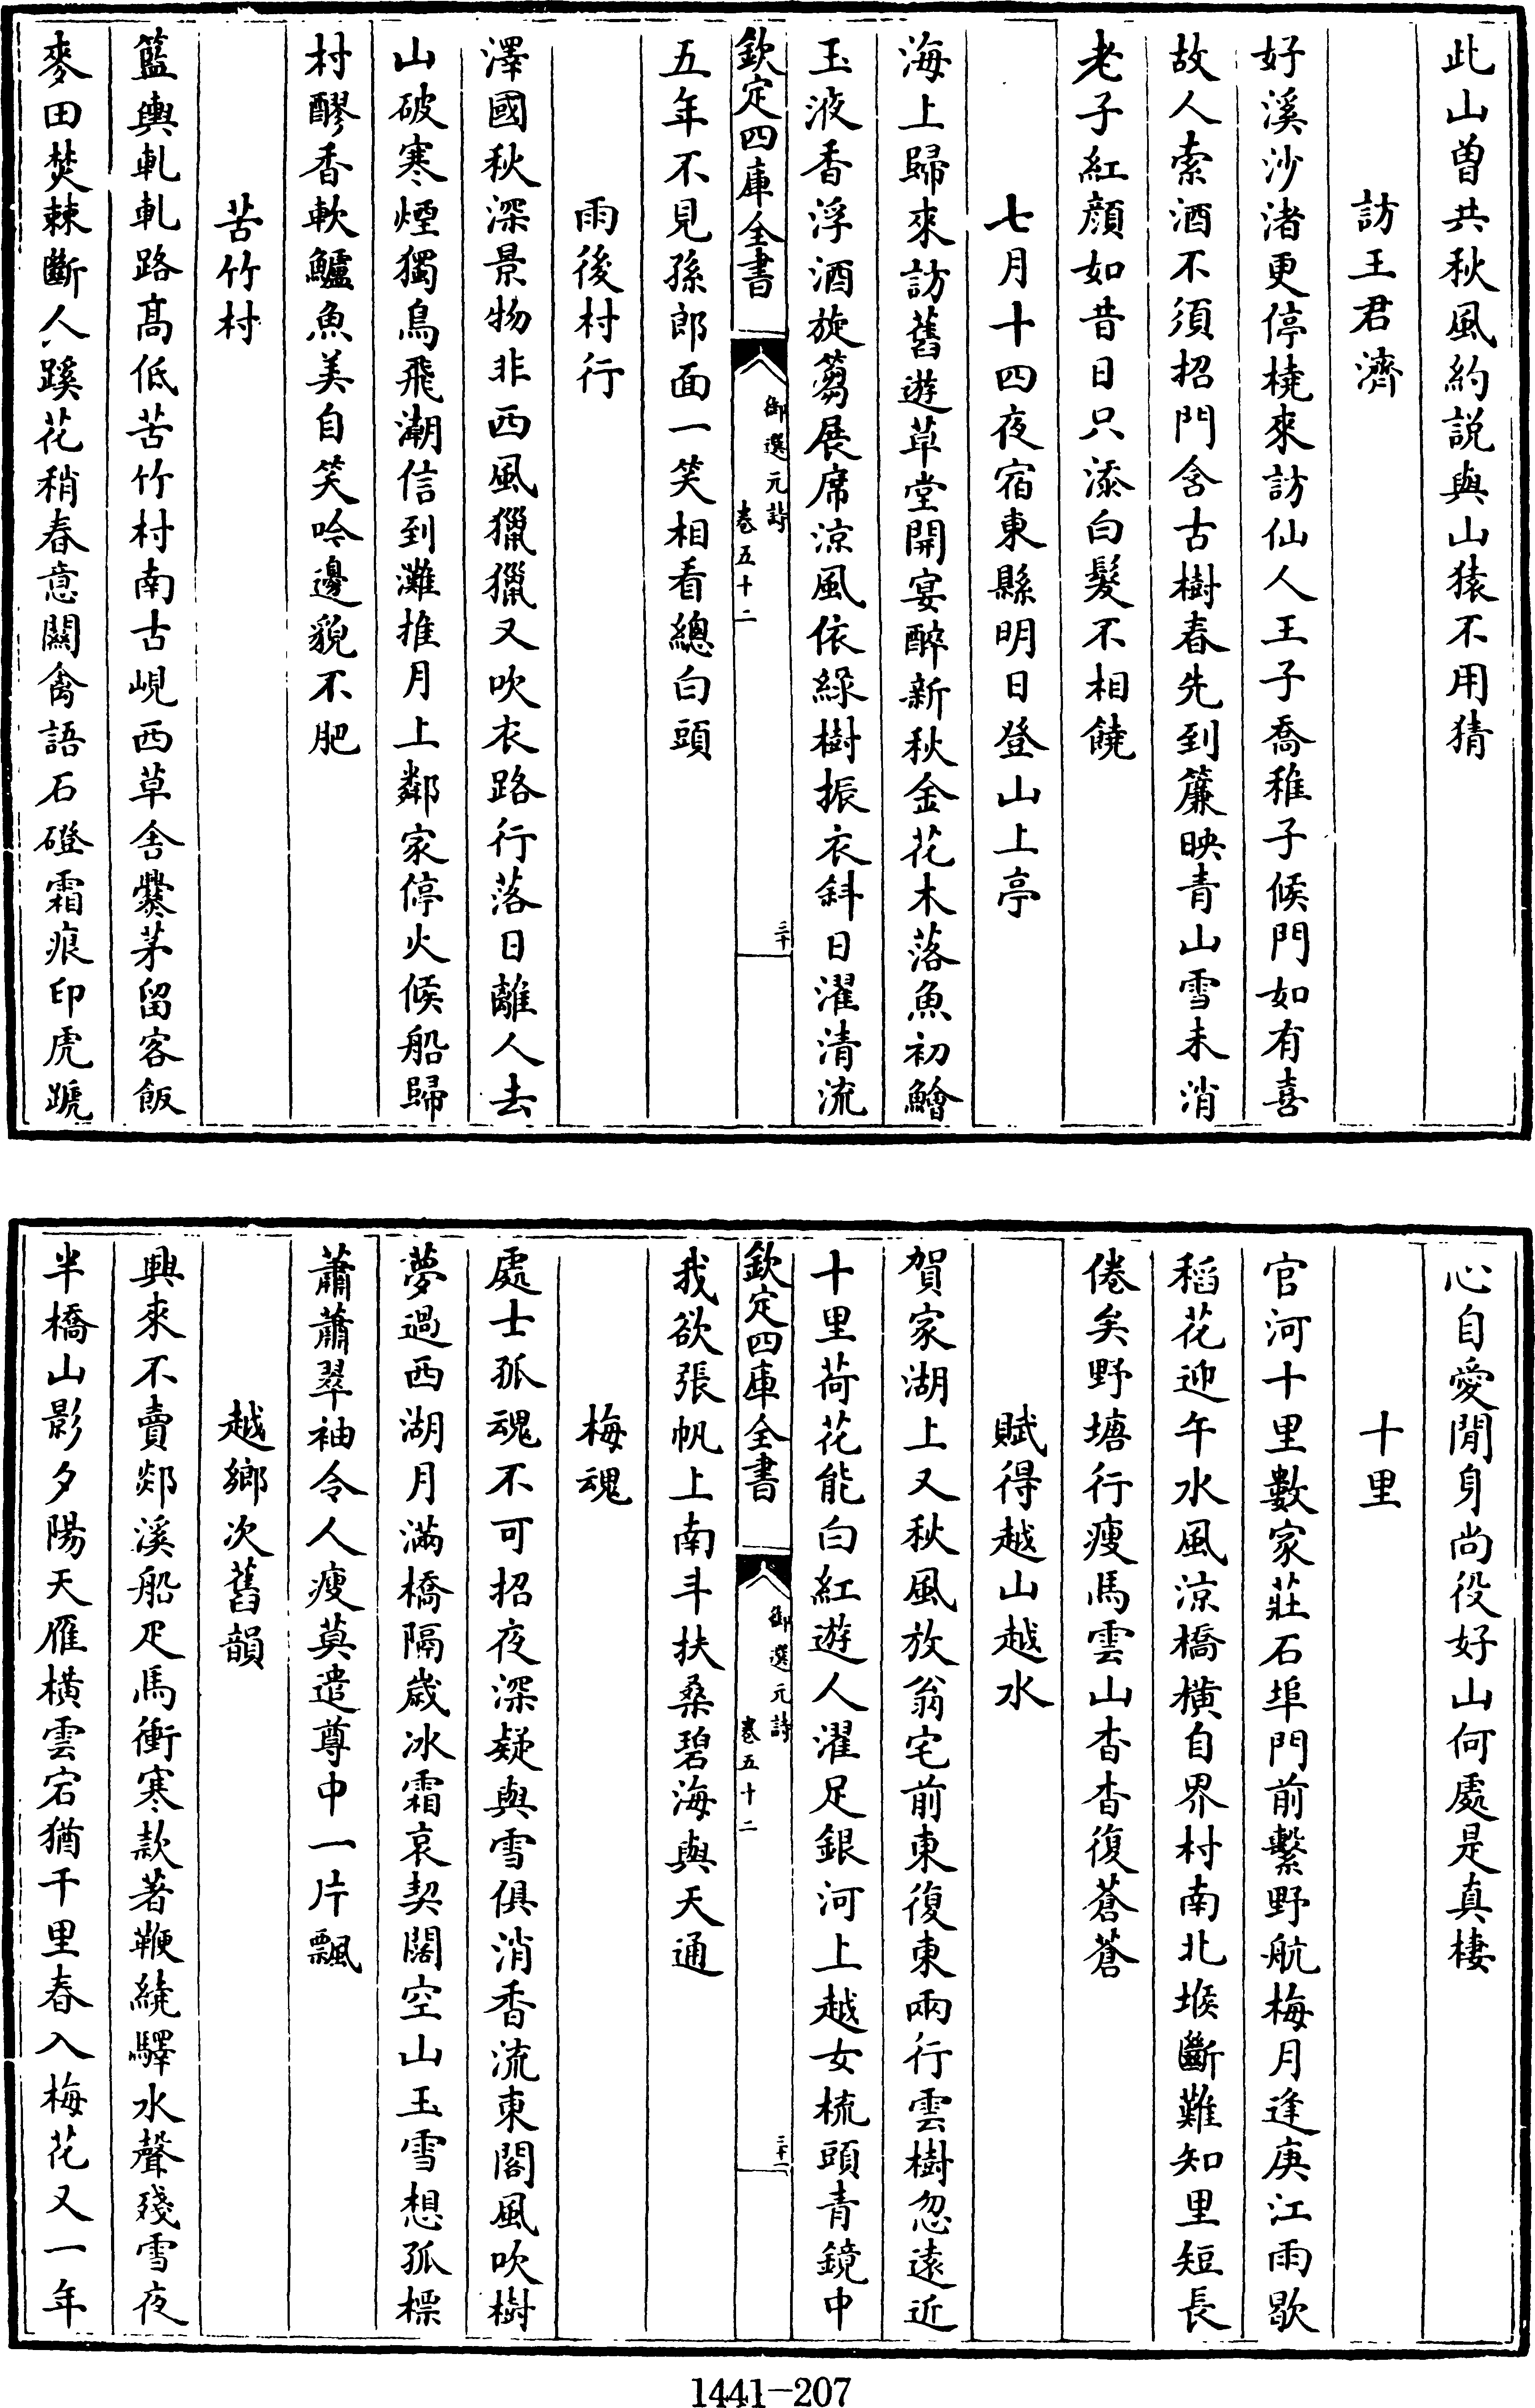 此山曾共秋風約説與山猿不用猜
訪王君濟
好溪沙渚更停橈來訪仙人王子喬稚子候門如有喜
故人索酒不須招門含古樹春先到簾映青山雪未消
老子紅顔如昔日只添白髮不相饒
七月十四夜宿東縣明日登山上亭
海上歸來訪舊遊草堂開宴醉新秋金花木落魚初鱠
玉液香浮酒旋篘展席涼風依綠樹振衣斜日濯清流
欽定四庫全書
御選元詩
卷五十二
三十
五年不見孫郎面一笑相看總白頭
雨後村行
澤國秋深景物非西風獵獵又吹衣路行落日離人去
山破寒煙獨鳥飛潮信到灘推月上鄰家停火候船歸
村醪香軟鱸魚美自笑吟邊貌不肥
苦竹村
籃輿軋軋路髙低苦竹村南古峴西草舍爨茅留客飯
麥田焚棘斷人蹊花稍春意闗禽語石磴霜痕印虎蹏
心自愛閒身尚役好山何處是真棲
十里
官河十里數家莊石埠門前繫野航梅月逢庚江雨歇
稻花迎午水風涼橋橫自界村南北堠斷難知里短長
倦矣野塘行瘦馬雲山杳杳復蒼蒼
賦得越山越水
賀家湖上又秋風放翁宅前東復東兩行雲樹忽遠近
十里荷花能白紅遊人濯足銀河上越女梳頭青鏡中
欽定四庫全書
御選元詩
卷五十二
三十一
我欲張帆上南斗扶桑碧海與天通
梅魂
處士孤魂不可招夜深疑與雪俱消香流東閣風吹樹
夢過西湖月滿橋隔歲冰霜哀契闊空山玉雪想孤標
蕭蕭翠袖令人瘦莫遣尊中一片飄
越鄉次舊韻
興來不賣郯溪船疋馬衝寒款著鞭繞驛水聲殘雪夜
半橋山影夕陽天雁橫雲宕猶千里春入梅花又一年
1441-207